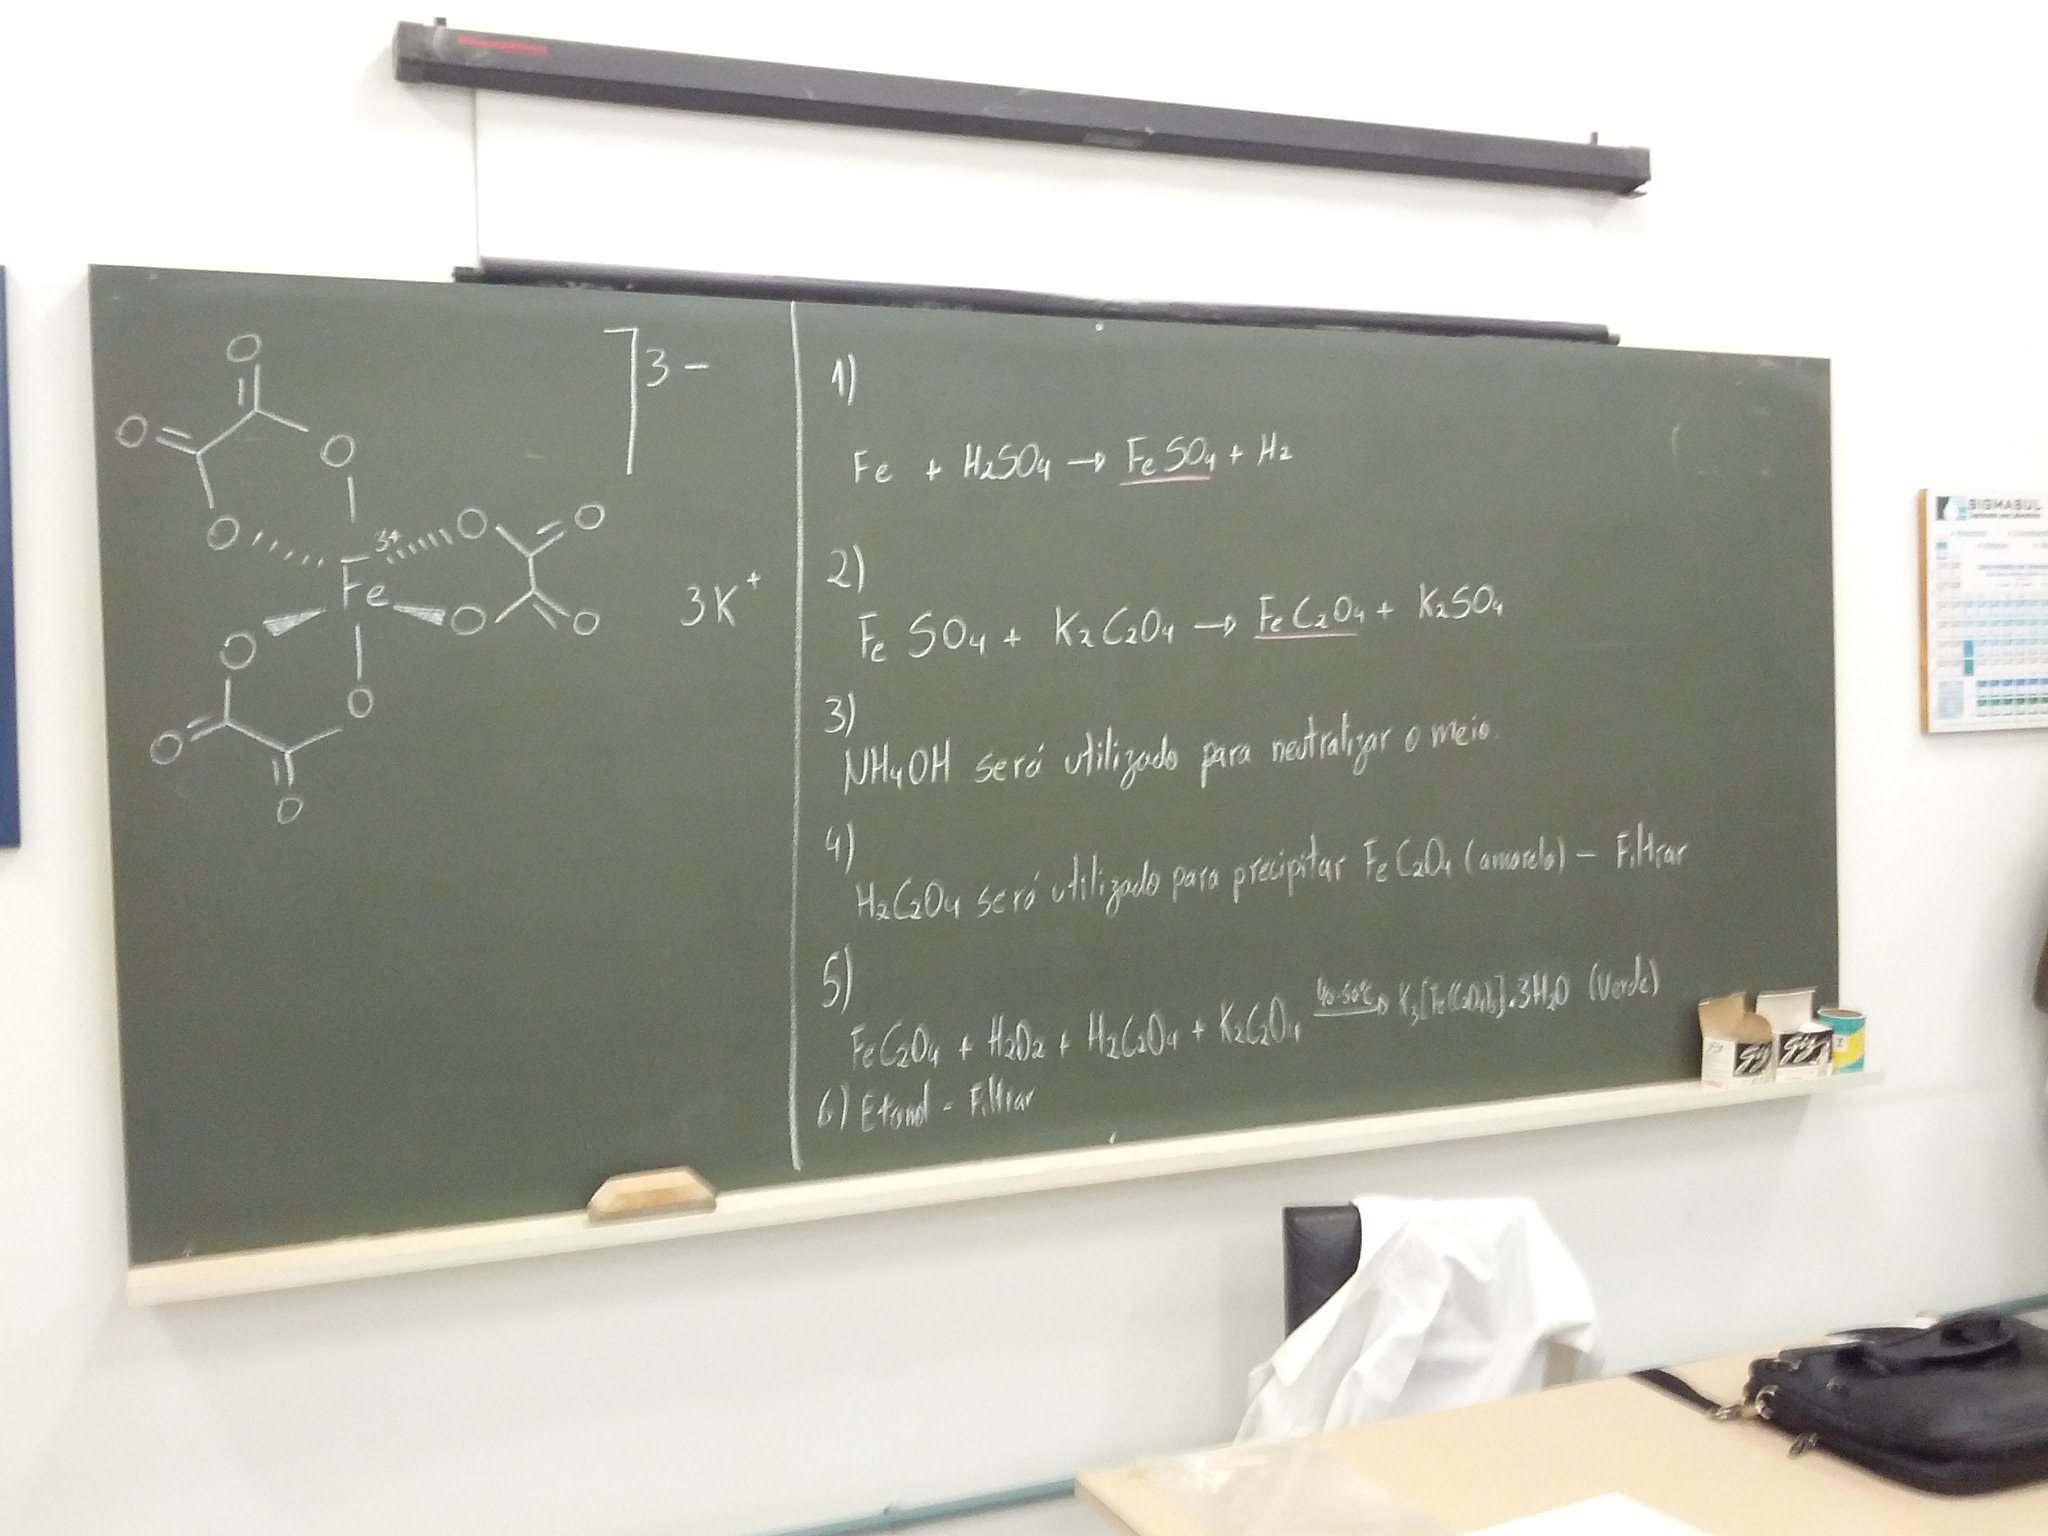 O
O
O
O
O
3+
Fe
O
O
O
O
O
O
O
]3-
3K+
1)
Fe + H₂SO₄ → FeSO₄ + H₂
2)
FeSO₄ + K₂C₂O₄ → FeC₂O₄ + K₂SO₄
3)
NH₄OH será utilizado para neutralizar o meio.
4)
H₂C₂O₄ será utilizado para precipitar FeC₂O₄ (amarelo) - Filtrar
5)
FeC₂O₄ + H₂O₂ + H₂C₂O₄ + K₂C₂O₄ 40-50°C → K₃[Fe(C₂O₄)₃].3H₂O (Verde)
6) Etanol - Filtrar
SIGMASUL
Giz
Giz